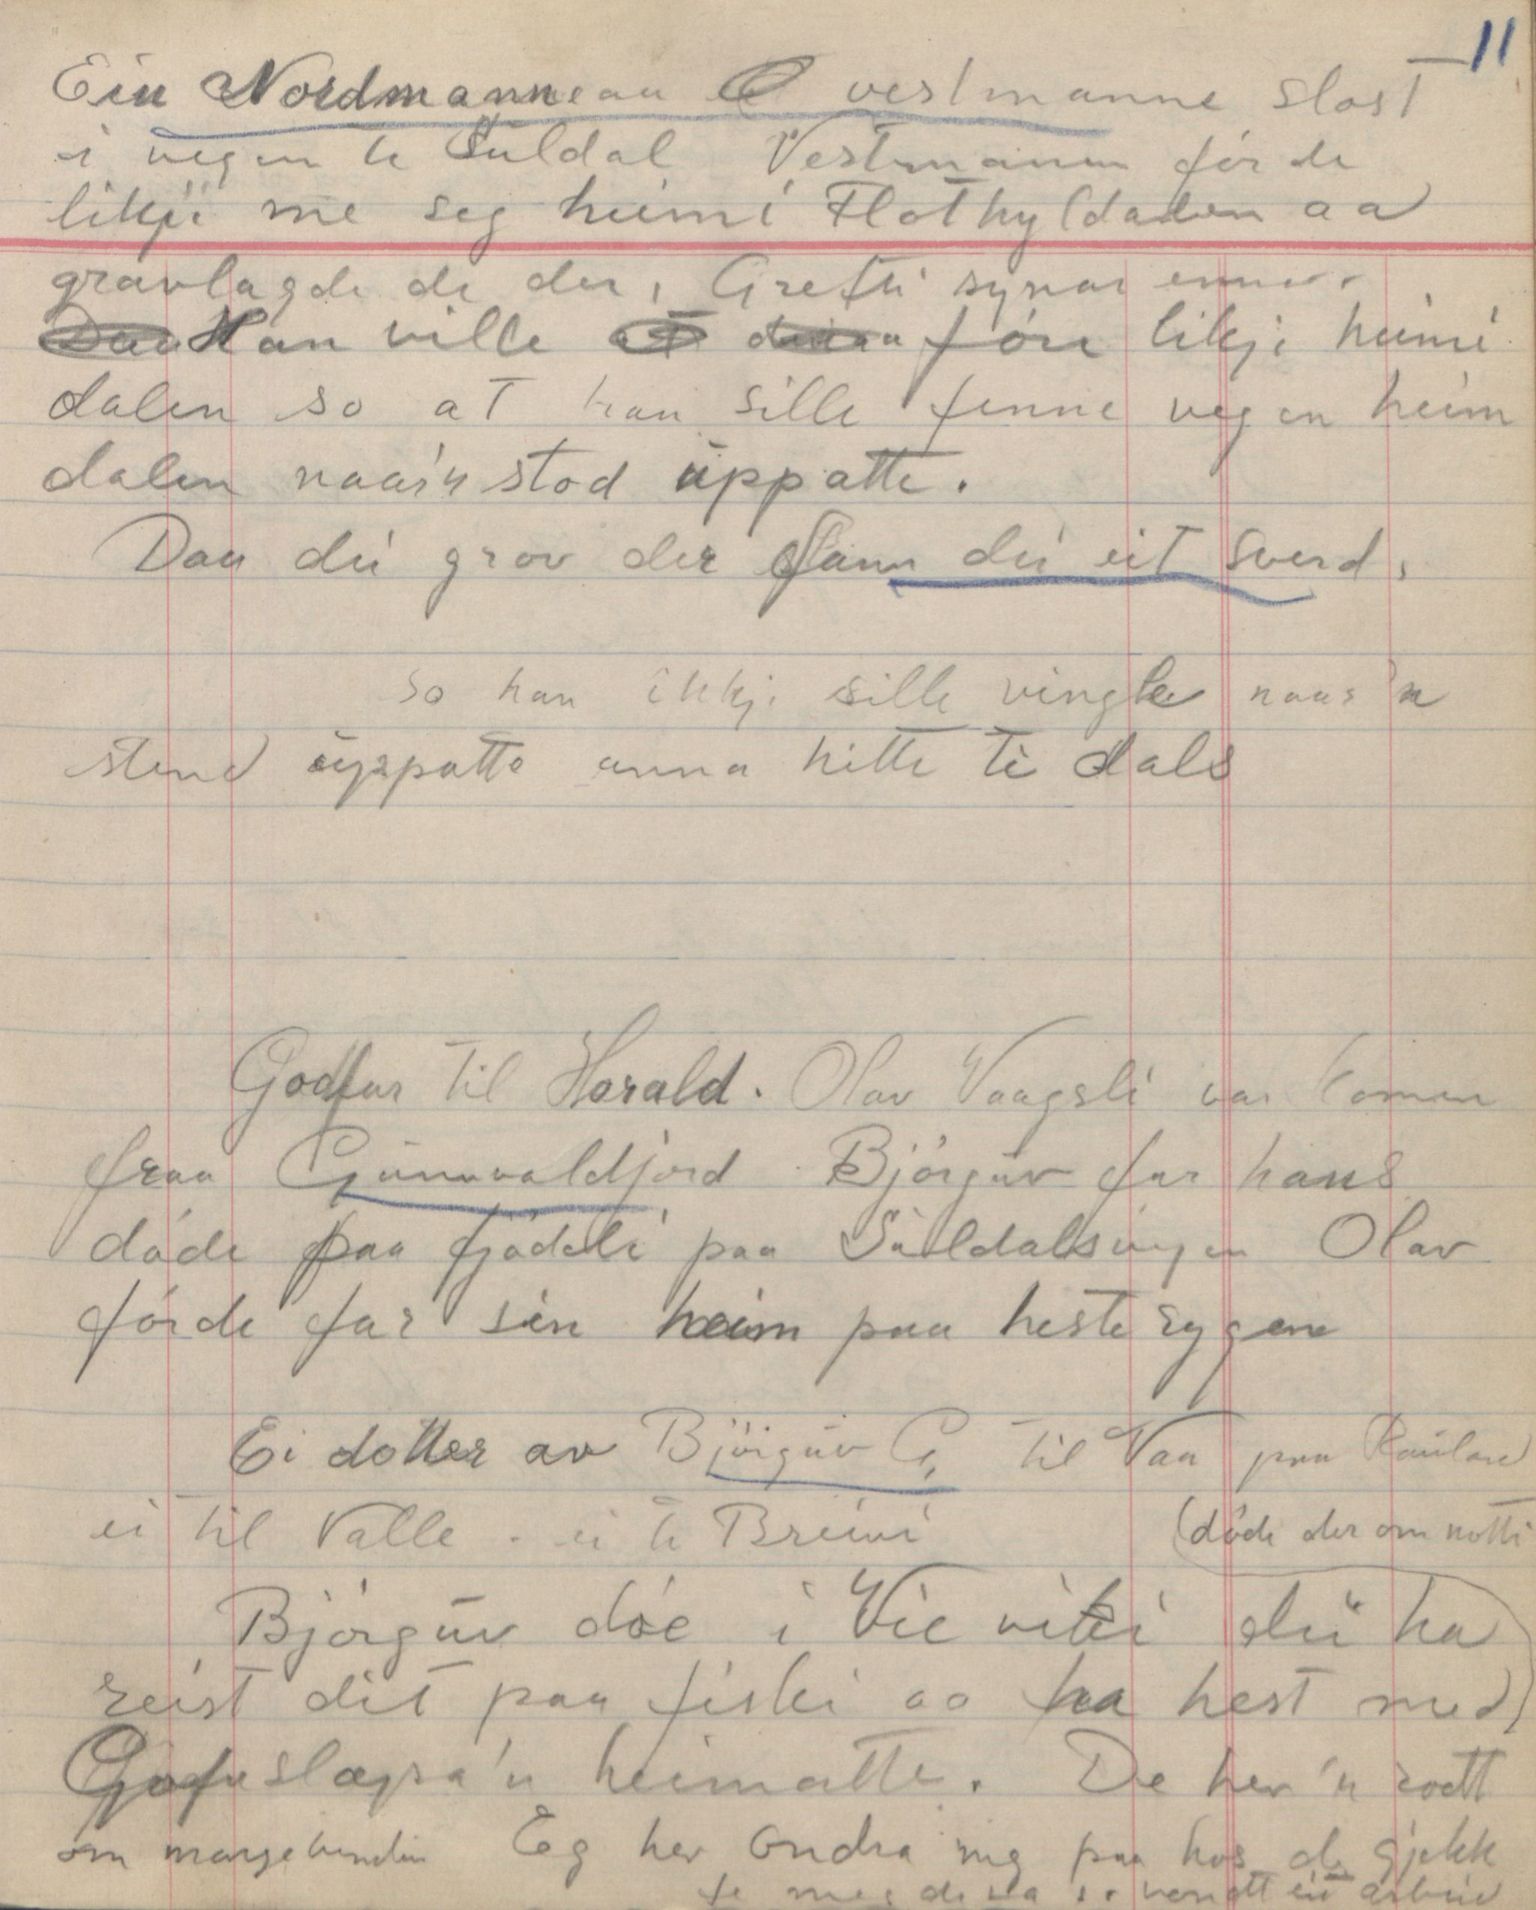 11
Ein Nordmann aa vestmanne slost
i vegen te Suldal Vestmannen förde
likji me seg heim i Flothyldalen aa
gravlagde de der, Grefti synar enno.
Han ville före likji heim i
dalen so at han sille finne vegen heim
dalen naar'n stod üppatte.
Dau dei grov der fann dei eit sverd.
so han ikkji sille vingle naar'n
stend üppatte anna hitte te dals
Godfar til Harald. Olav Vaagsli var komen
fraa Gunnvaldjord Björgüv far hans
döde paa fjödeli paa Suldalsvegen Olav
förde far sin heim paa hesterygen
Ei dotter av Björgüv G. til Vaa paa Rauland
ei til Valle - ei te Breivi
(döde der om notti
Björgüv döe i Vie viki dei ha
reist dit paa fiski ao ha hest med)
Gofa slæpa'n heimatte. De her'n rodt
om mange Eg her ondra meg paa hos de gjekk
te me de va so vondt eit arbeid